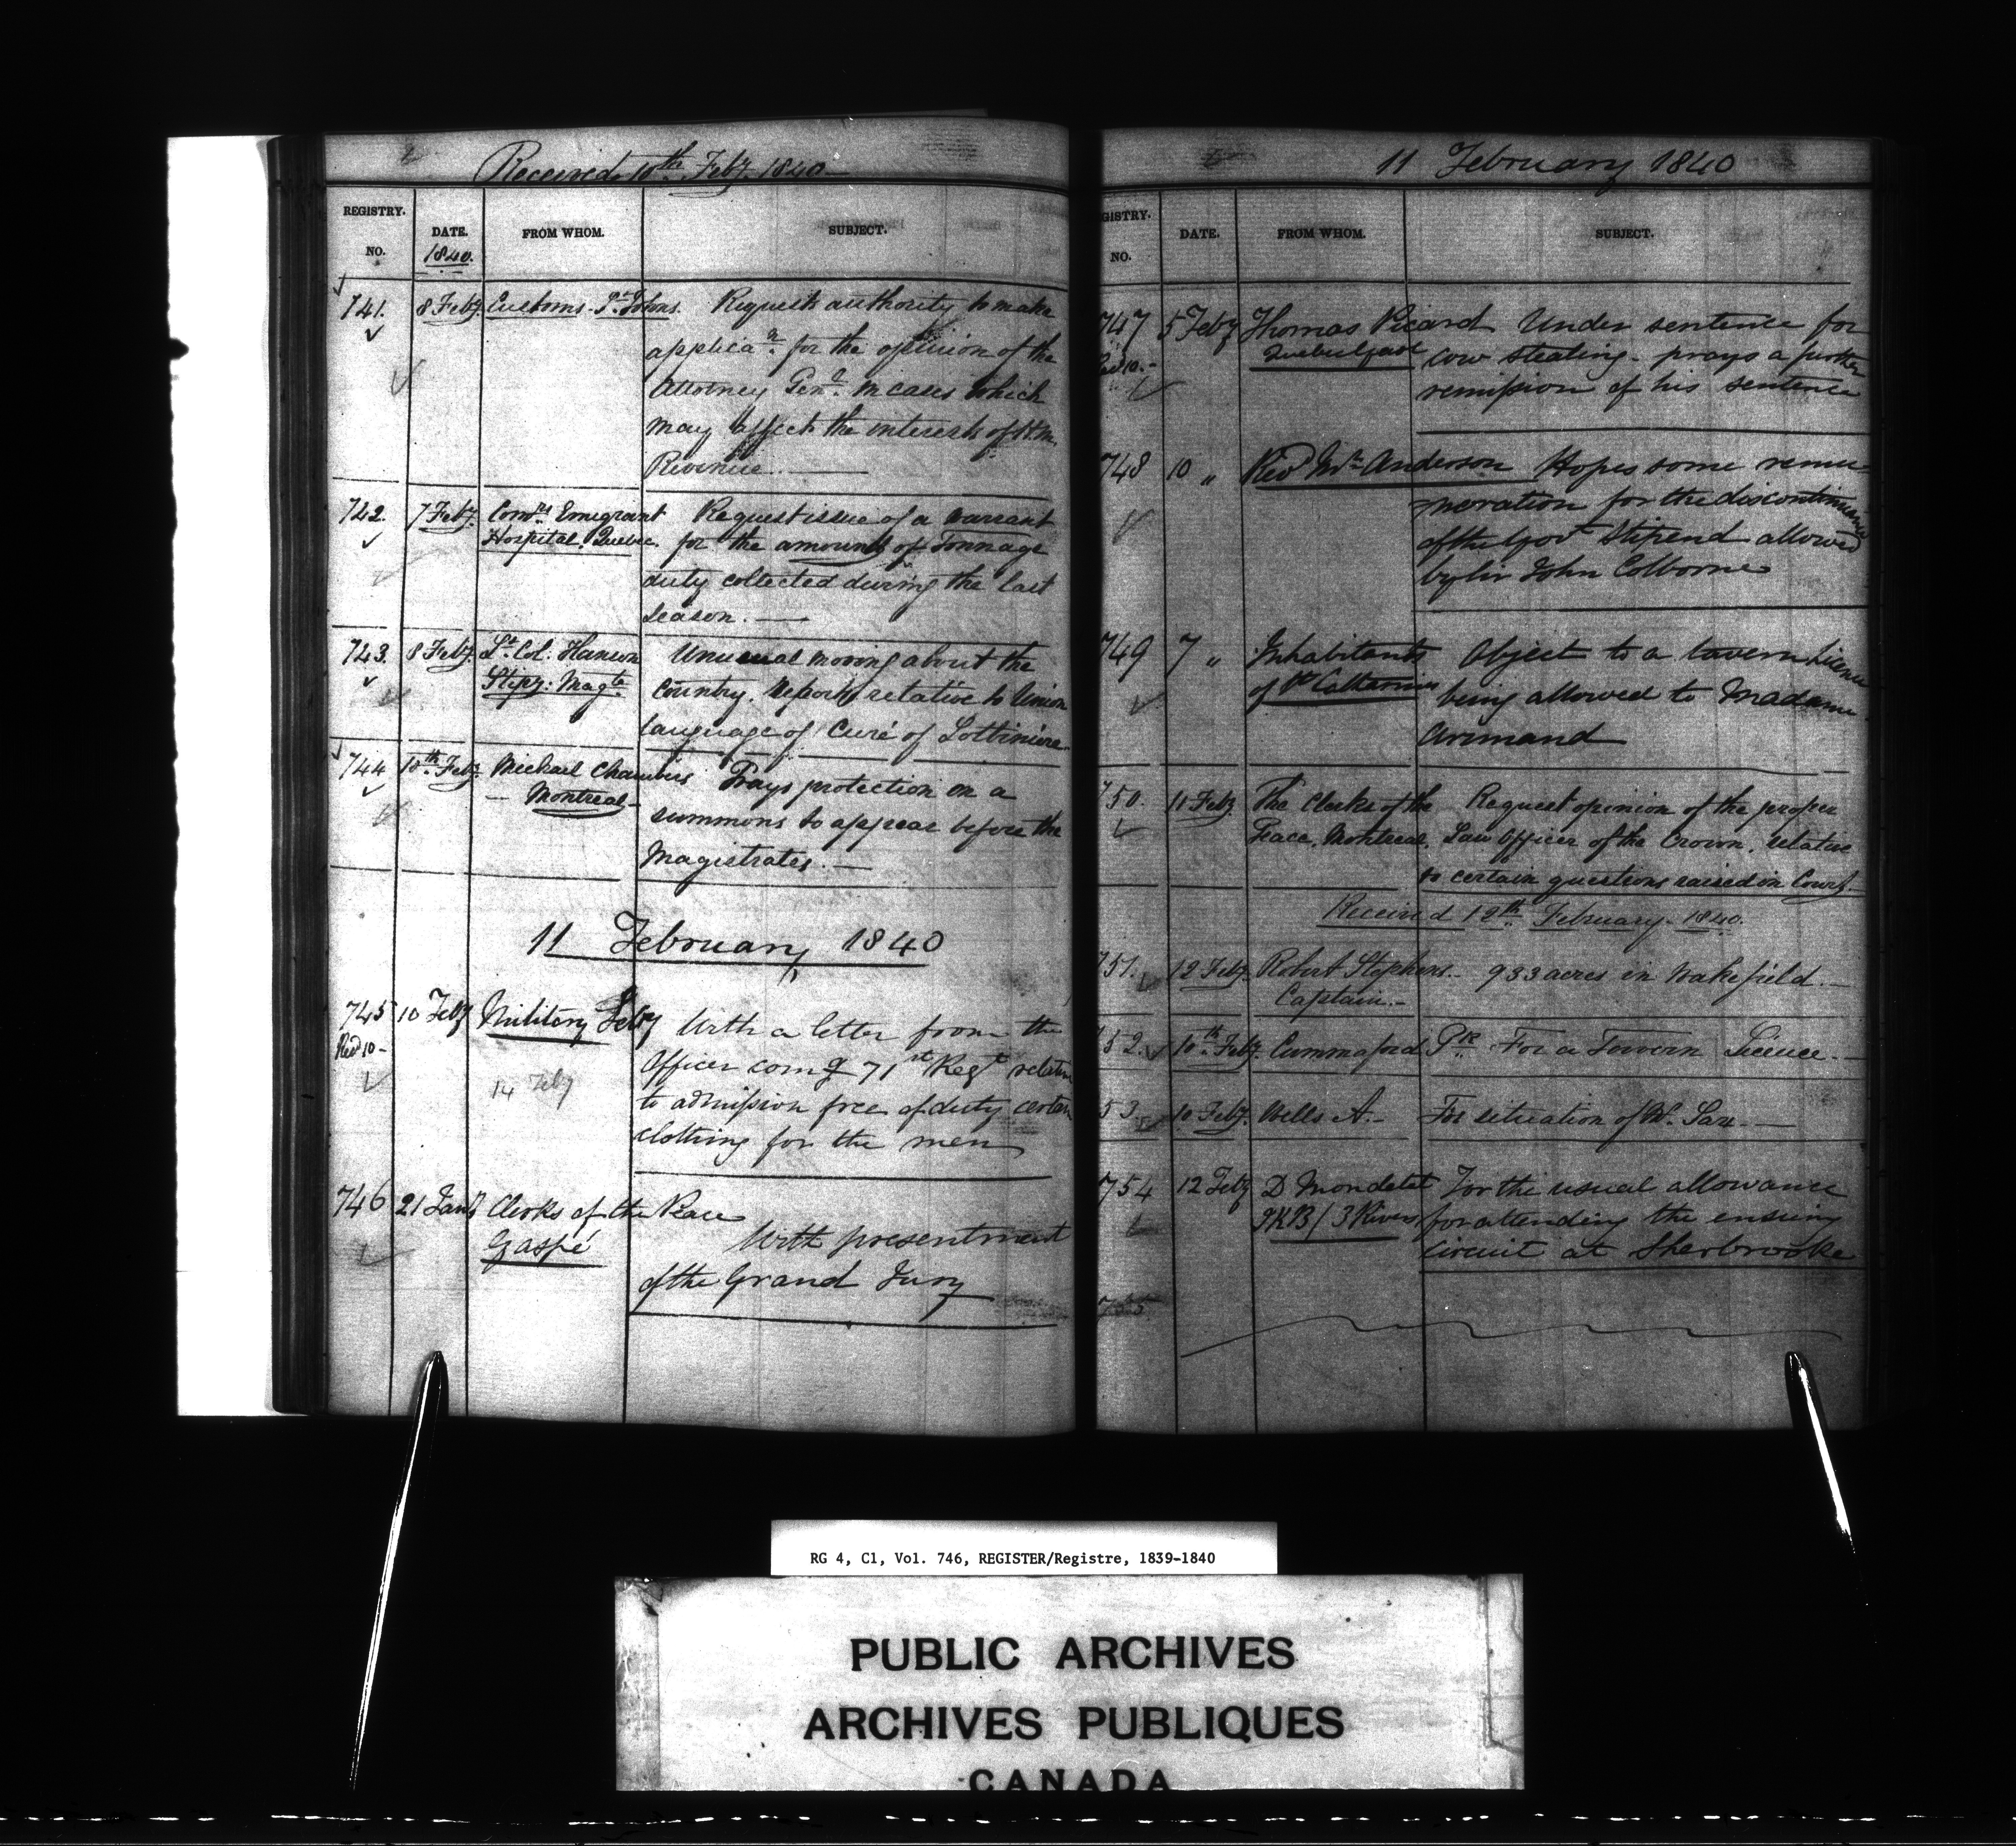 Received 10th Feby 1840
REGISTRY.
NO.
DATE.
1840.
FROM WHOM.
SUBJECT.
741. 8 Feby. Customs. St Johns. Request authority to make
applican. for the opinion of the
Attorney Genl. in cases which
may affect the interests of H.M.
Revenue.
742. 7 Feby. Comrs Emigrant Request issue of a warrant
Hospital. Quebec. for the amount of Tonnage
duty collected during the last
season.
743. 8 Feby. Lt. Col. Hanson Unusual moving about the
Stipy: Magte Country. Reports relative to Union
language of Curé of Lotbiniere
744 10th Feby. Michael Chambers Prays protection on a
Montreal summons to appear before the
Magistrates.
11 February 1840
745 10 Feby Military Secy With a letter from the
Recd 10 Officer comg 71st Regt relative
14 Feby to admission free of duty certain
clothing for the men
746 21 Jany Clerks of the Peace
Gaspé With presentment
of the Grand Jury
11 February 1840
GISTRY.
NO.
DATE.
FROM WHOM.
SUBJECT.
747 5 Feby Thomas Picard Under sentence for
Recd 10. Quebec Gaol cow stealing. prays a further
remission of his sentence
748 10 " Revd Mr Anderson Hopes some remu-
neration for the discontinuance
of the Govt Stipend allowed
by Sir John Colborne
749 7 " Inhabitants Object to a tavern Licence
of St Catharines being allowed to Madame
Armand
750. 11 Feby. The Clerks of the Request opinion of the proper
Peace, Montreal. Law Officer of the Crown, relative
to certain questions raised in Court.
Received 12th February 1840.
751. 12 Feby. Robert Stephens 933 acres in Wakefield.
Captain.
52. 10th Feby. Cummaford Pk For a Tavern Licence.
53. 10 Feby. Wells A. For situation of Mr.
754 12 Feby D Mondelet For the usual allowance
JKB / 3 Rivers for attending the ensuing
Circuit at Sherbrooke
755
RG 4, C1, Vol. 746, REGISTER/Registre, 1839-1840
PUBLIC ARCHIVES
ARCHIVES PUBLIQUES
CANADA